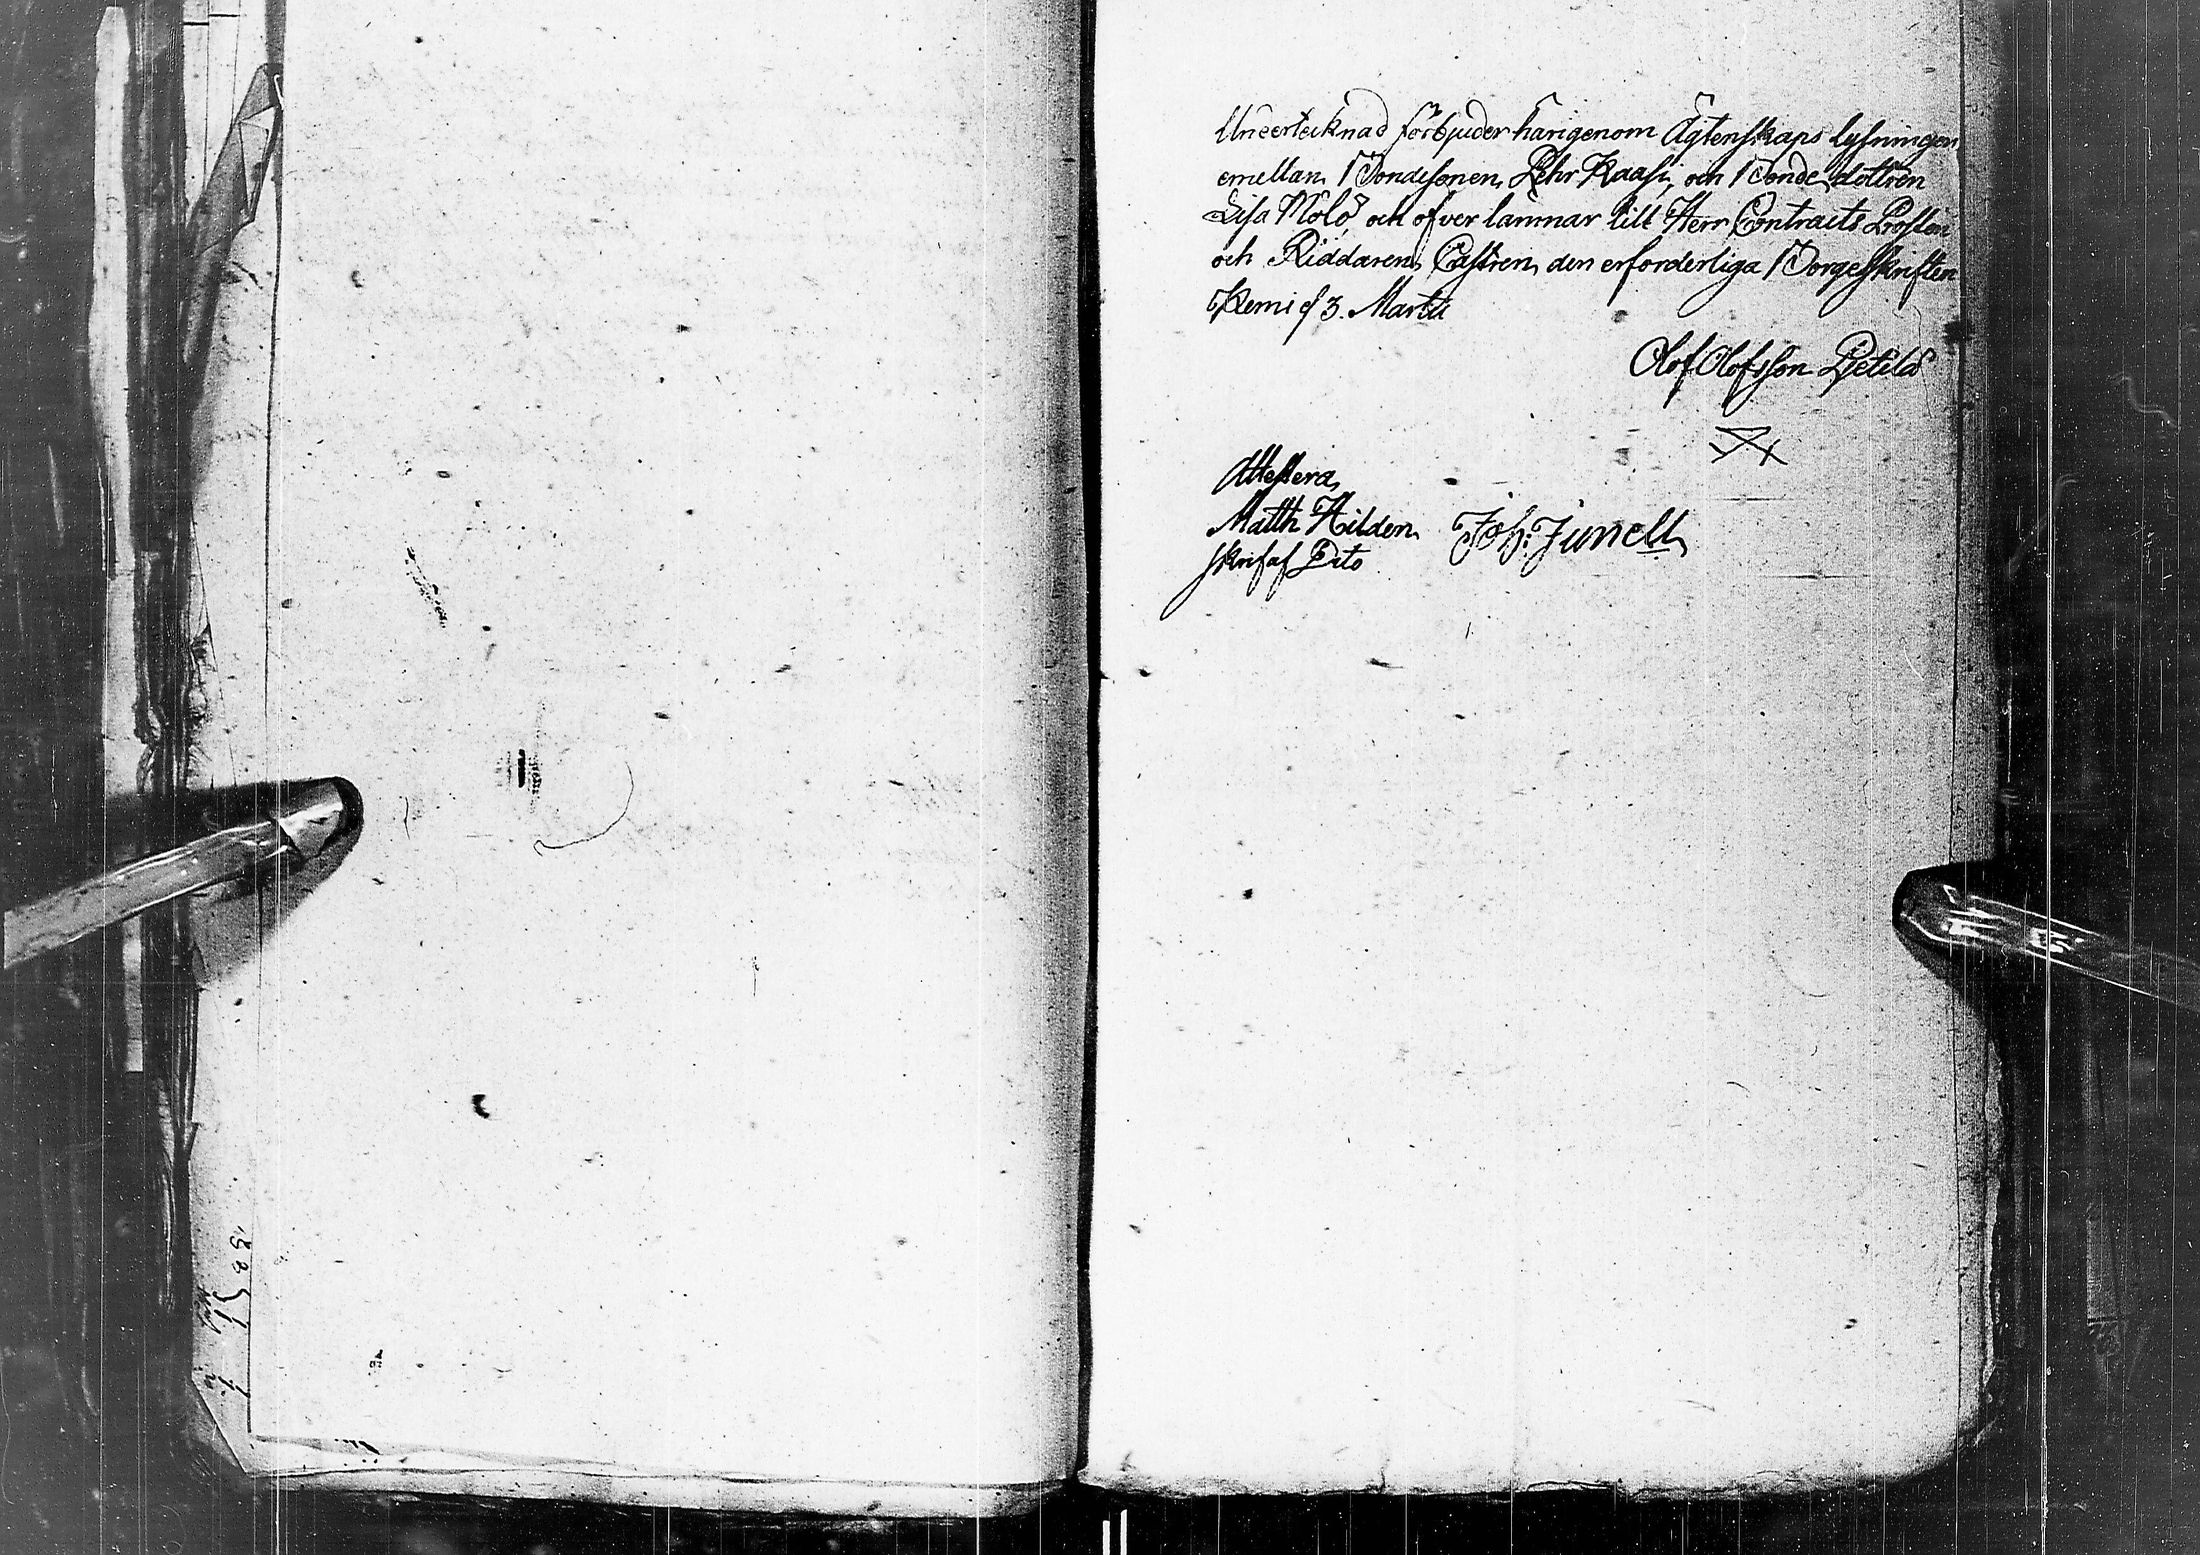 Undertecknad förbjuder härigenom Ägtenskaps lysningen
emellan Bondesonen Pehr Kaasi, och Bonde dottren
Lisa Nolo, och öfver lämnar till Herr Contracts Prosten
och Riddaren Castren den erforderliga Borgesskriften
Kemi d 3. Martii
Olof Olofsson
Attestera
Matth Hilden Joh: Junell
skrif af Dito